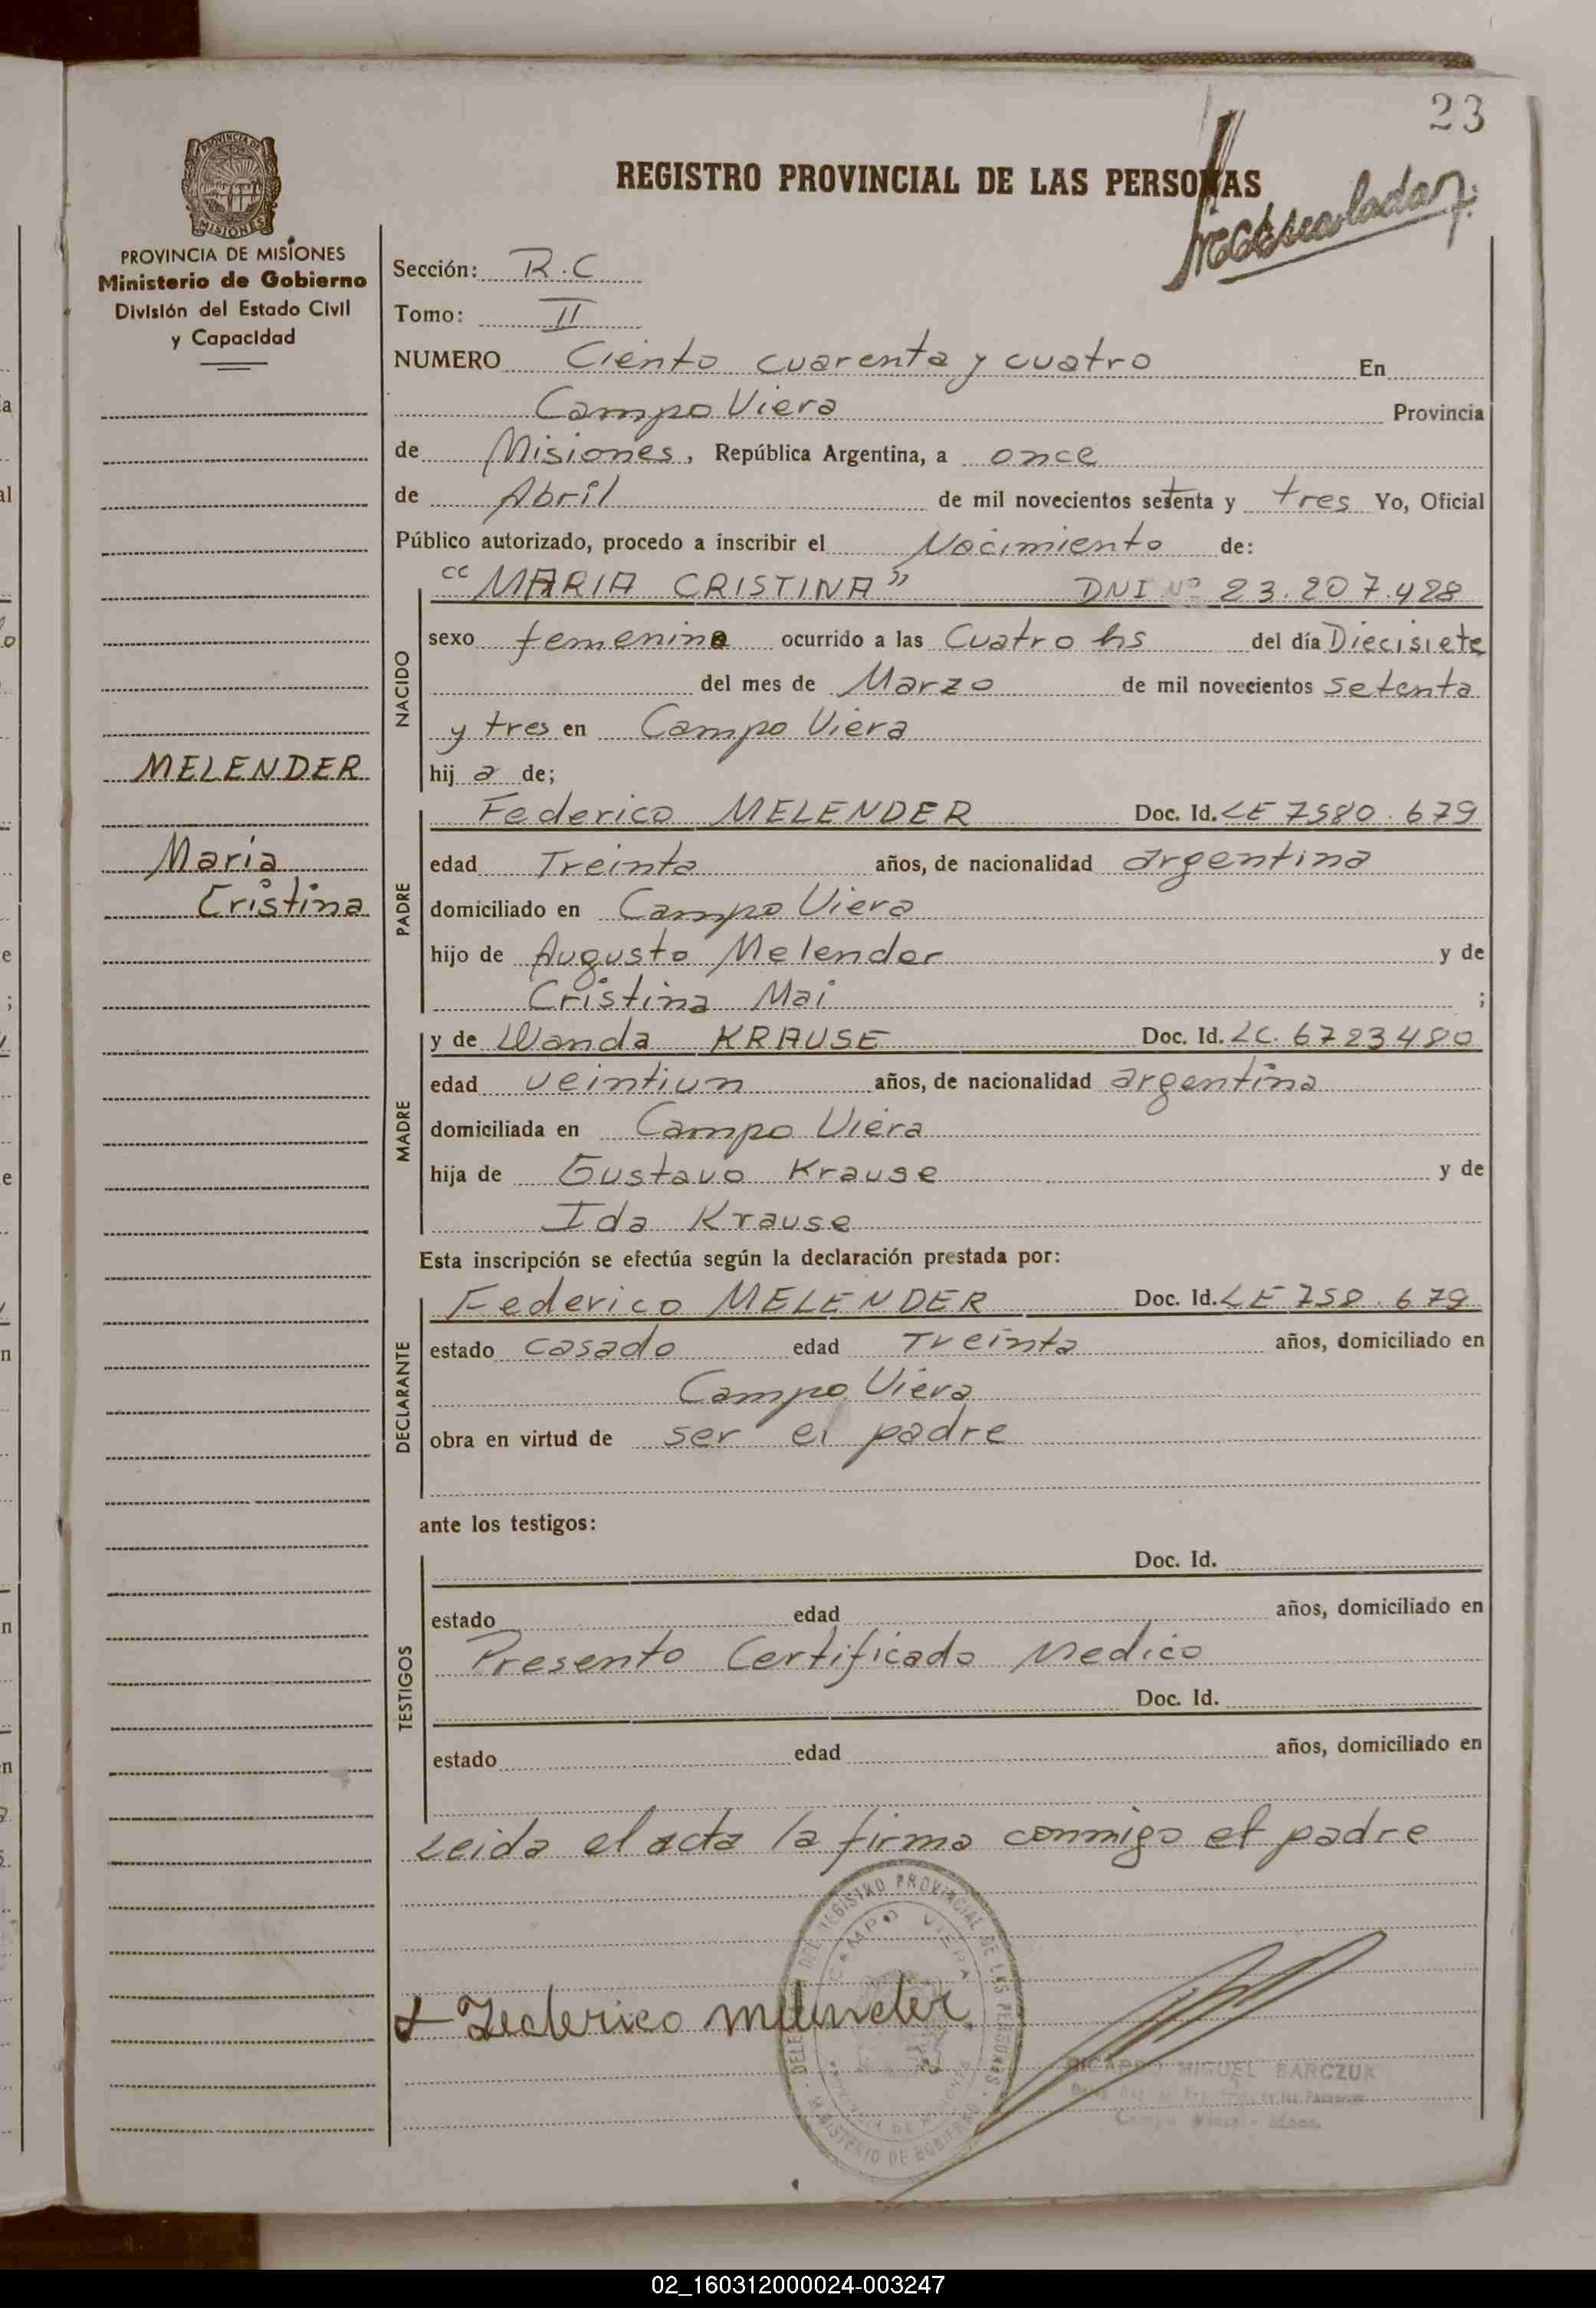 23
REGISTRO PROVINCIAL DE LAS PERSONAS
PROVINCIA DE MISIONES
MISIONES
PROVINCIA DE MISIONES
Ministerio de Gobierno
División del Estado Civil
y Capacidad
Sección: R.C
Tomo: II
NUMERO Ciento cuarenta y cuatro En
Campo Viera Provincia
de Misiones, República Argentina, a once
de Abril de mil novecientos setenta y tres Yo, Oficial
Público autorizado, procedo a inscribir el Nacimiento de:
"MARIA CRISTINA" DNI Nº 23.207.428
NACIDO
sexo femenino ocurrido a las Cuatro hs del día Diecisiete
del mes de Marzo de mil novecientos setenta
y tres en Campo Viera
MELENDER
hija de;
Federico MELENDER Doc. Id. LE 7580.679
Maria
Cristina
PADRE
edad Treinta años, de nacionalidad argentina
domiciliado en Campo Viera
hijo de Augusto Melender y de
Cristina Mai ;
y de Wanda KRAUSE Doc. Id. LC. 6723480
MADRE
edad veintiun años, de nacionalidad argentina
domiciliada en Campo Viera
hija de Gustavo Krause y de
Ida Krause
Esta inscripción se efectúa según la declaración prestada por:
Federico MELENDER Doc. Id. LE 758.679
DECLARANTE
estado casado edad Treinta años, domiciliado en
Campo Viera
obra en virtud de ser el padre
ante los testigos:
Doc. Id.
TESTIGOS
estado edad años, domiciliado en
Presento Certificado Medico
Doc. Id.
estado edad años, domiciliado en
Leida el acta la firma conmigo el padre
DEL REGISTRO PROVINCIAL DE LAS PERSONAS
CAMPO VIERA
MINISTERIO DE GOBIERNO
Federico Melender
RICARDO MIGUEL BARCZUK
02_160312000024-003247